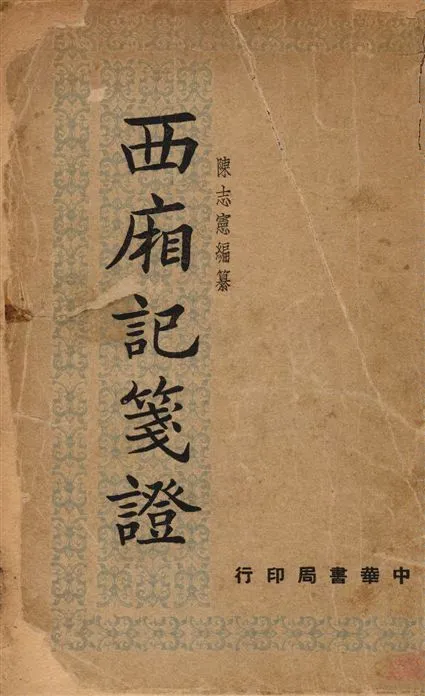 陳志憲編纂
西廂記箋證
中華書局印行